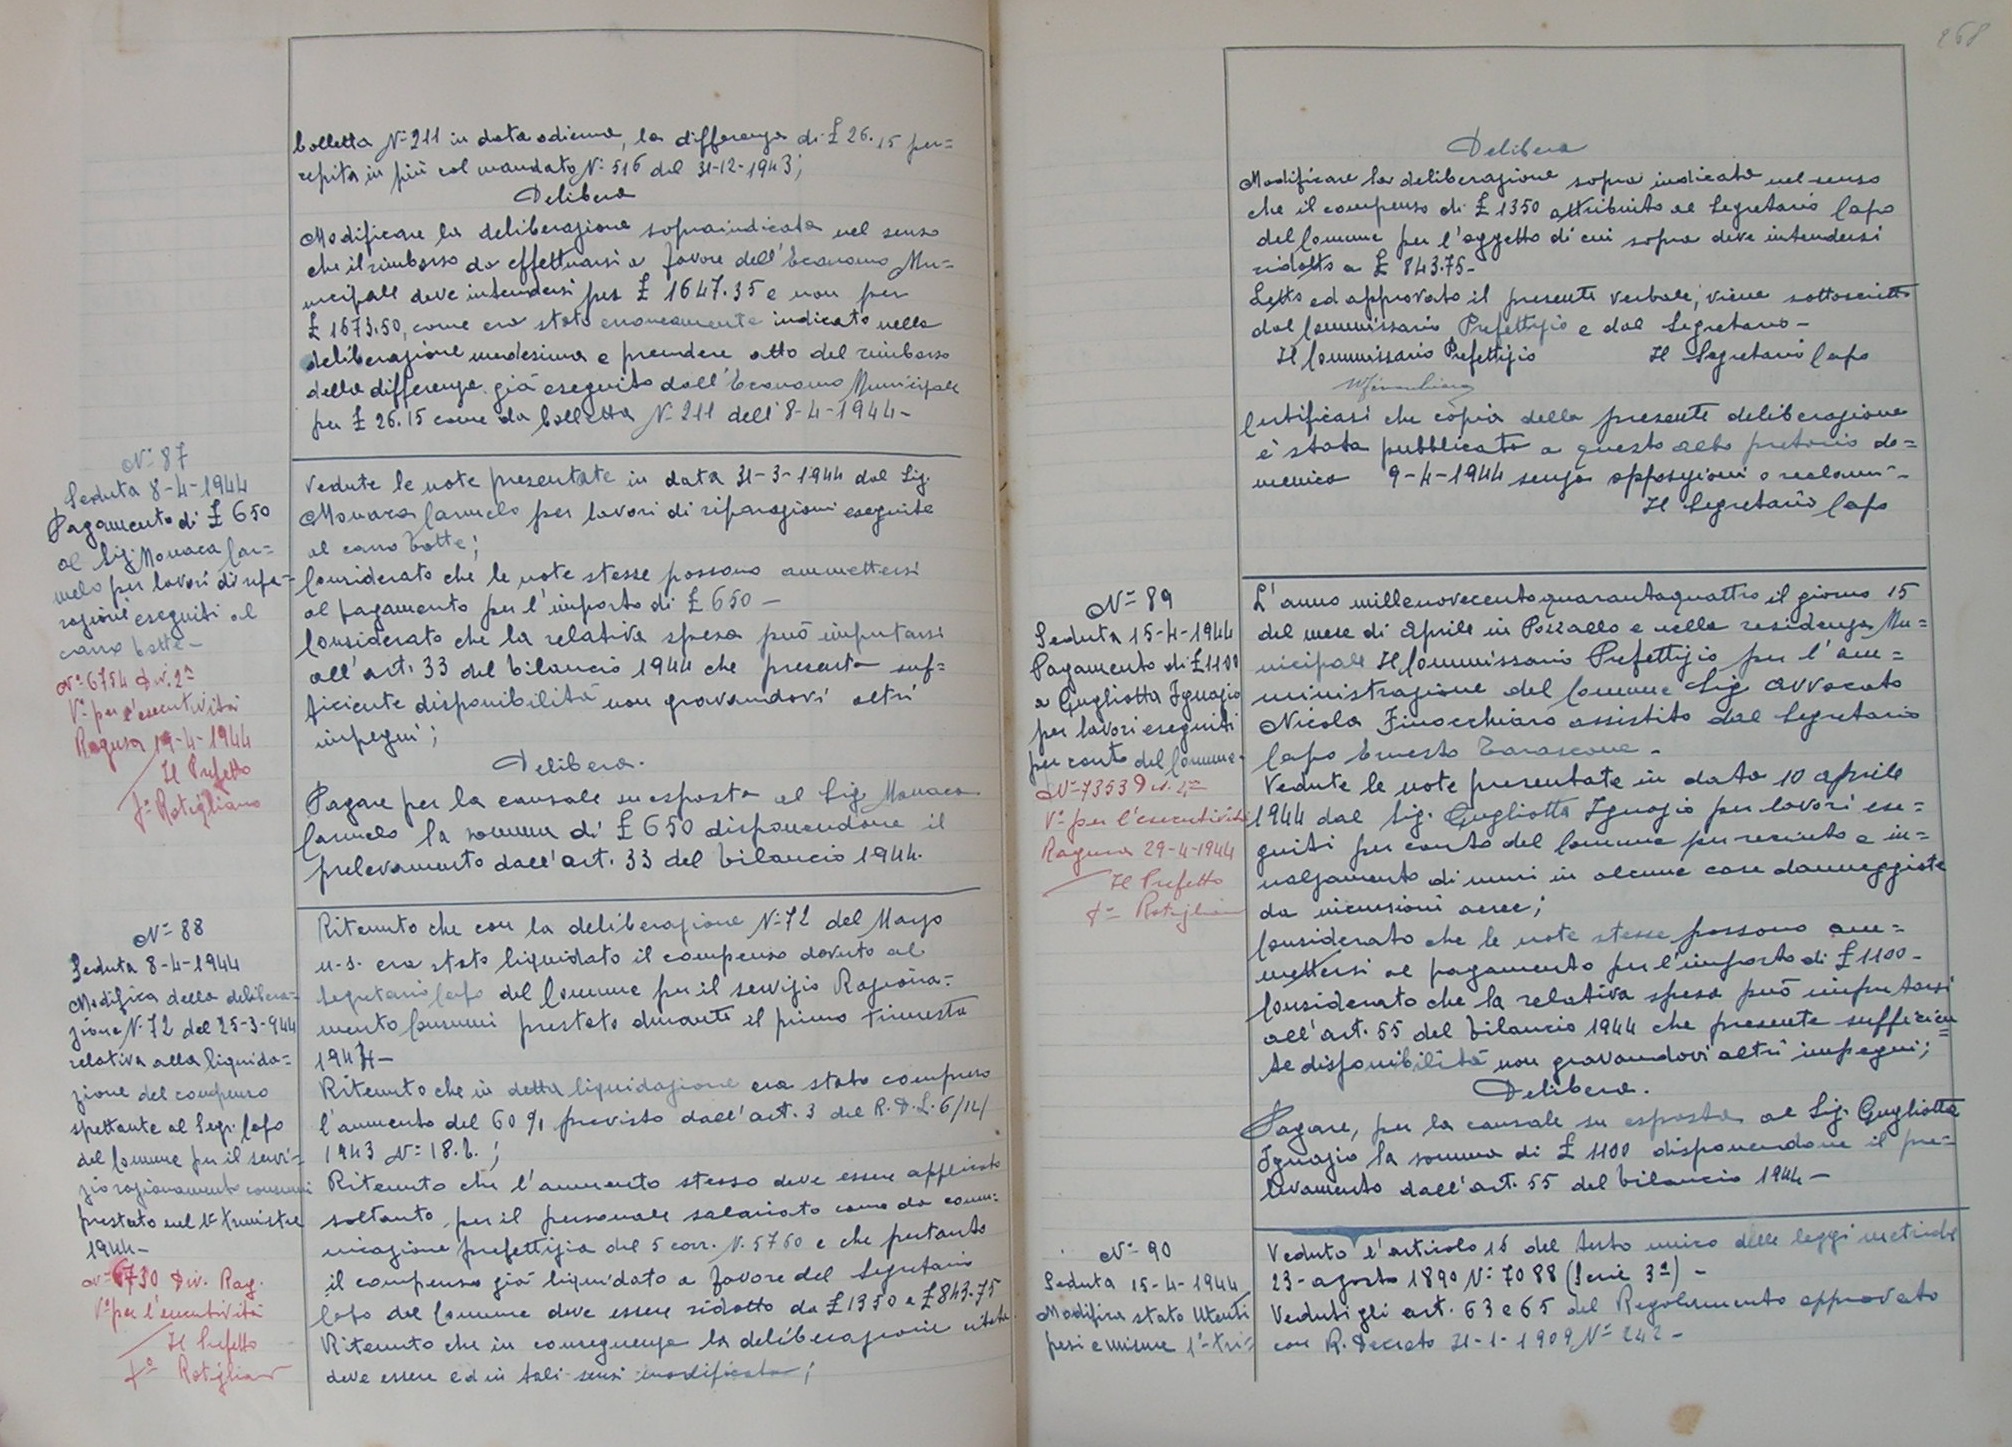 bolletta N° 211 in data odierna, la differenza di £ 26.15 per=
cepita in più col mandato N° 516 del 31-12-1943;
Delibera
Modificare la deliberazione sopraindicata nel senso
che il rimborso da effettuarsi a favore dell'Economo Mu=
nicipale deve intendersi per £ 1647.35 e non per
£ 1673.50, come era stato erroneamente indicato nella
deliberazione medesima e prendere atto del rimborso
della differenza già eseguito dall'Economo Municipale
per £ 26.15 come da bolletta N° 211 dell' 8-4-1944-
N° 87
Seduta 8-4-1944
Pagamento di £ 650
al Sig. Monaca Car=
melo per lavori di ripa=
razioni eseguiti al
carro botte-
N° 6754 Div. 2ª
V° per l'esecutività
Ragusa 19-4-1944
Il Prefetto
f° Rotigliano
Vedute le note presentate in data 31-3-1944 dal Sig.
Monaca Carmelo per lavori di riparazioni eseguite
al carro botte;
Considerato che le note stesse possono ammettersi
al pagamento per l'importo di £ 650-
Considerato che la relativa spesa può imputarsi
all'art. 33 del bilancio 1944 che presenta suf=
ficiente disponibilità non gravandovi altri
impegni;
Delibera.
Pagare per la causale su esposta al Sig. Monaca
Carmelo la somma di £ 650 disponendone il
prelevamento dall'art. 33 del bilancio 1944.
N° 88
Seduta 8-4-1944
Modifica della delibera=
zione N° 72 del 25-3-944
relativa alla liquida=
zione del compenso
spettante al Segr. Capo
del Comune per il servi=
zio razionamento consumi
prestato nel 1° trimestre
1944-
N° 6730 Div. Rag.
V° per l'esecutività
Il Prefetto
f° Rotigliano
Ritenuto che con la deliberazione N° 72 del Marzo
u.s. era stato liquidato il compenso dovuto al
Segretario Capo del Comune per il servizio Raziona=
mento Consumi prestato durante il primo trimestre
1944-
Ritenuto che in detta liquidazione era stato compreso
l'aumento del 60 % previsto dall'art. 3 del R.D.L. 6/12/
1943 N° 18.B.;
Ritenuto che l'aumento stesso deve essere applicato
soltanto per il personale salariato come da comu=
nicazione prefettizia del 5 corr. N. 5760 e che pertanto
il compenso già liquidato a favore del Segretario
Capo del Comune deve essere ridotto da £ 1350 a £ 843.75
Ritenuto che in conseguenza la deliberazione citata
deve essere ed in tali sensi modificata;
268
Delibera
Modificare la deliberazione sopra indicata nel senso
che il compenso di £ 1350 attribuito al Segretario Capo
del Comune per l'oggetto di cui sopra deve intendersi
ridotto a £ 843.75-
Letto ed approvato il presente verbale, viene sottoscritto
dal Commissario Prefettizio e dal Segretario-
Il Commissario Prefettizio Il Segretario Capo
Certificasi che copia della presente deliberazione
è stata pubblicata a questo albo pretorio do=
menica 9-4-1944 senza opposizioni o reclami-
Il Segretario Capo
N° 89
Seduta 15-4-1944
Pagamento di £ 1100
a Gugliotta Ignazio
per lavori eseguiti
per conto del Comune-
N° 7353 Div. 2ª
V° per l'esecutività
Ragusa 29-4-1944
Il Prefetto
f° Rotigliano
L'anno millenovecentoquarantaquattro il giorno 15
del mese di Aprile in Pozzallo e nella residenza Mu=
nicipale Il Commissario Prefettizio per l'am=
ministrazione del Comune Sig. Avvocato
Nicola Finocchiaro assistito dal Segretario
Capo Ernesto Tarascone-
Vedute le note presentate in data 10 aprile
1944 dal Sig. Gugliotta Ignazio per lavori ese=
guiti per conto del Comune per recinto e in=
nalzamento di muri in alcune case danneggiate
da incursioni aeree;
Considerato che le note stesse possono am=
mettersi al pagamento per l'importo di £ 1100-
Considerato che la relativa spesa può imputarsi
all'art. 55 del bilancio 1944 che presente sufficien
te disponibilità non gravandovi altri impegni;
Delibera.
Pagare, per la causale su esposta al Sig. Gugliotta
Ignazio la somma di £ 1100 disponendone il pre=
levamento dall'art. 55 del bilancio 1944-
N° 90
Seduta 15-4-1944
Modifica stato Utenti
pesi e misure 1° tri
Veduto l'articolo 16 del testo unico delle leggi metriche
23-agosto 1890 N° 7088 (Serie 3ª)-
Veduti gli art. 63 e 65 del Regolamento approvato
con R. Decreto 31-1-1909 N° 242-